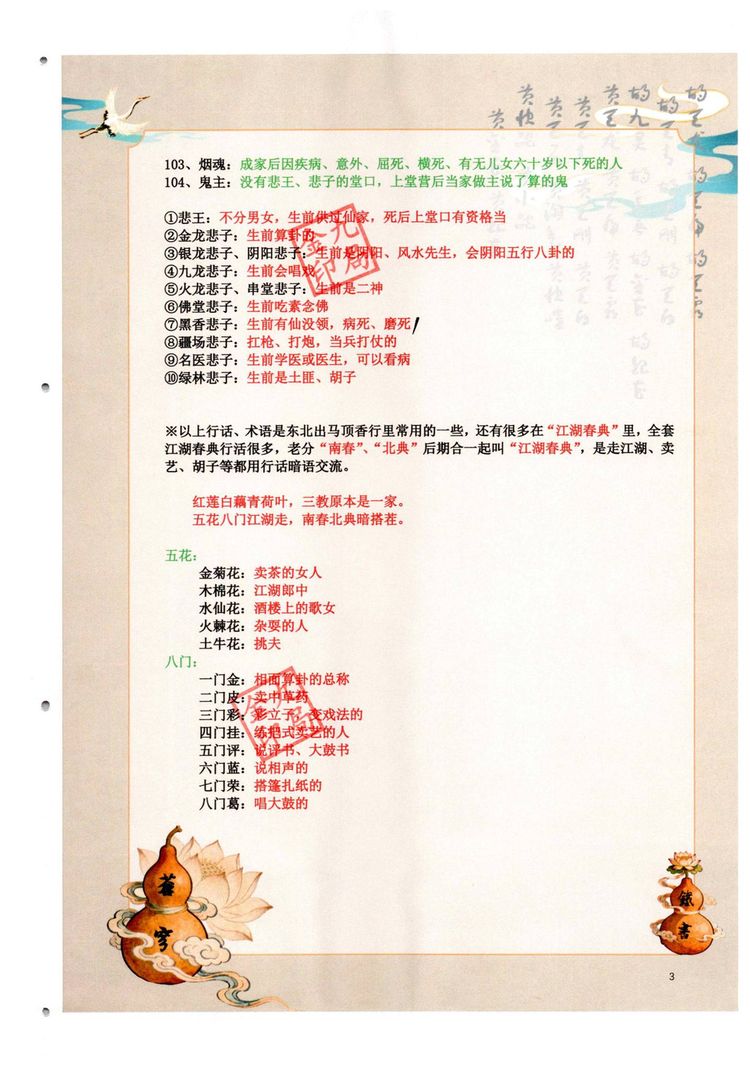 103、烟魂：成家后因疾病、意外、屈死、横死、有无儿女六十岁以下死的人
104、鬼主：没有悲王、悲子的堂口，上堂营后当家做主说了算的鬼
①悲王：不分男女，生前供过仙家，死后上堂口有资格当
②金龙悲子：生前算卦的
③银龙悲子、阴阳悲子：生前是阴阳、风水先生，会阴阳五行八卦的
④九龙悲子：生前会唱戏
⑤火龙悲子、串堂悲子：生前是二神
⑥佛堂悲子：生前吃素念佛
⑦黑香悲子：生前有仙没领，病死、磨死
⑧疆场悲子：扛枪、打炮，当兵打仗的
⑨名医悲子：生前学医或医生，可以看病
⑩绿林悲子：生前是土匪、胡子
※以上行话、术语是东北出马顶香行里常用的一些，还有很多在“江湖春典”里，全套
江湖春典行活很多，老分“南春”、“北典”后期合一起叫“江湖春典”，是走江湖、卖
艺、胡子等都用行话暗语交流。
红莲白藕青荷叶，三教原本是一家。
五花八门江湖走，南春北典暗搭茬。
五花：
金菊花：卖茶的女人
木棉花：江湖郎中
水仙花：酒楼上的歌女
火棘花：杂耍的人
土牛花：挑夫
八门：
一门金：相面算卦的总称
二门皮：卖中草药
三门彩：彩立子、变戏法的
四门挂：练把式卖艺的人
五门评：说评书、大鼓书
六门蓝：说相声的
七门荣：搭篷扎纸的
八门葛：唱大鼓的
九局
金印
蒼穹
鐵書
3